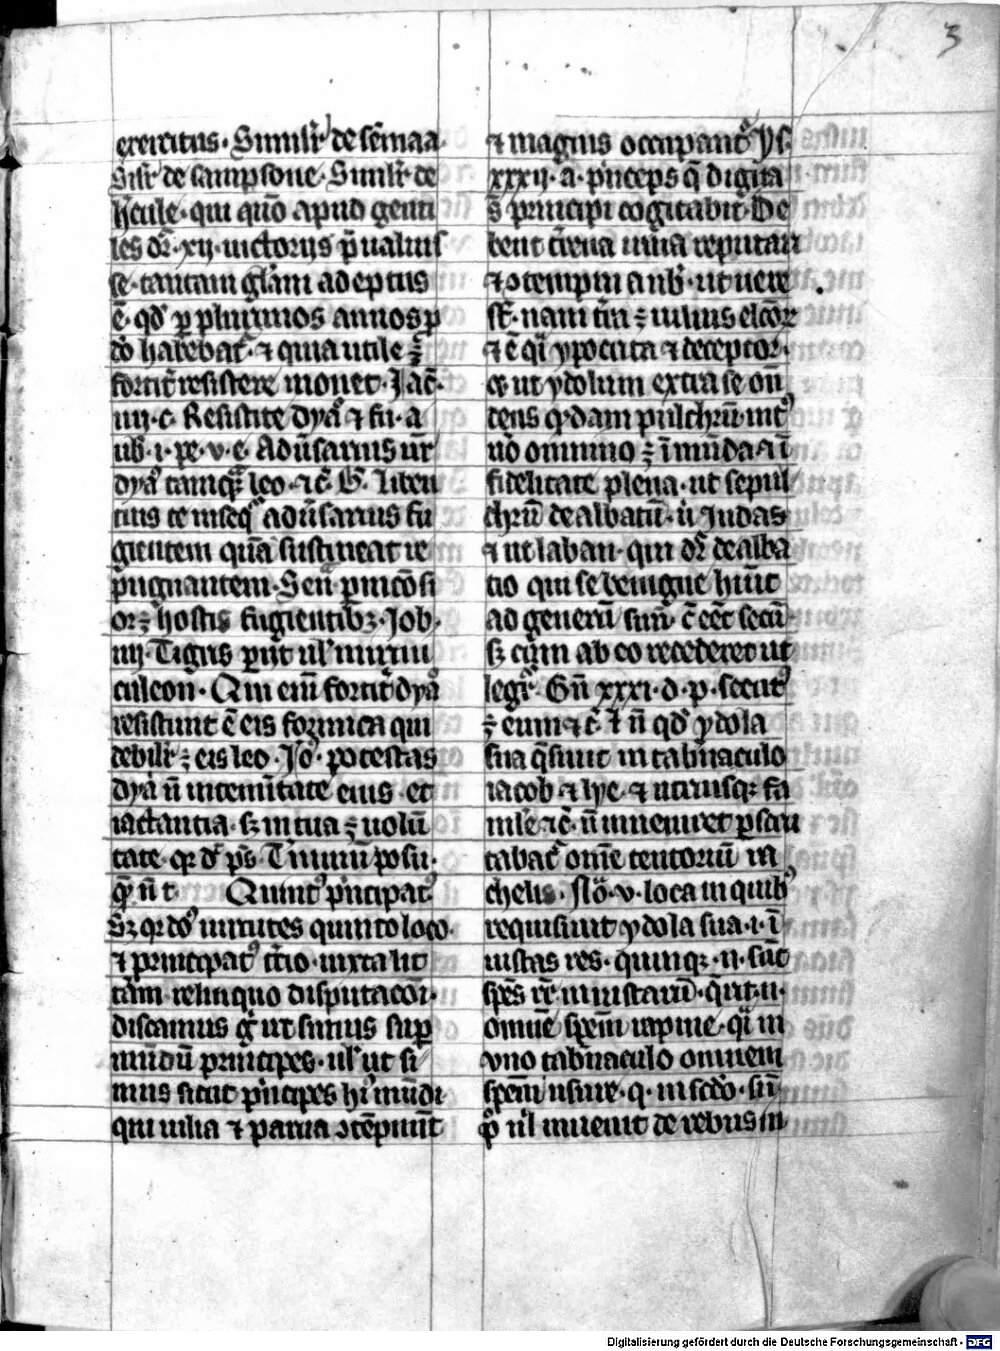 3
exercitus. Similr̄ de sēmaa.
Silr̄ de sampsone. Similr̄ de
h̓cule. qui quō apud genti
les dr̄. xij. uictorijs p̄ualuis
se. tantam gl̄am adeptus
ē. qd̓ p plurimos annos p
do habebat̓. ⁊ quia utile ꝫ
fortit̓ resistere monet. Jac̄.
iiij. c. Resistite dya̓ ⁊ fu. a
ub. i. pe. v. c. Adūsarius ur̄
dya̓ tamqꝫ leo. ⁊c̄. G. Liten
tius te inseq̓ adūsarius fu
gientem quā sustineat re
pugnantem. Sen̄. pnicōsi
orꝫ hostis fugientibꝫ. Job.
iiij. Tigris p̄iit ul̓ mirmi
culeon. Qui eni̅ fortit̓ dya̓
resistunt ē eis formica qui
debilr̄ ꝫ eis leo. Jo̓. potestas
dya̓ n̄ intemītate eius. et
iactantia. sꝫ in tua ꝫ uolū
tate. qꝛ d̓ ps̄. Timinū posu.
q̄ n̄ t. Quint̓ p̓ncipat̓
Sꝫ qꝛ do̓ uirtutes quinto loco.
⁊ principat̓ t̓cio. iuxta lit
tām. relinquo disputacōi.
discamus g̓ ut simus sup
mūdū principes. ul̓ ut si
mus sicut p̓ncipes hi̓ mūdi
qui uilia ⁊ parua ↄtēpnūt
⁊ magnis occupant̓ ys.
xxxij. a. p̓nceps q̄ digna
s̄ principi cogitabit. De
bent t̓rena uma reputari
⁊ ↄtempni ab nb̓. ut uere
st̄. nam t̓ra ꝫ uilius elcōꝝ
⁊ ē q̓i ypocrita ⁊ deceptor.
qꝛ ut ydolum extra se on̄
dens q̓dam pulchrū int̓
uo̓ omnino ꝫ īmūda ⁊ ī
fidelitate plena. ut sepul
chrū dealbatū. ut Judas
⁊ ut laban. qui dr̄ dealba
tio qui se benigne hūit
ad generū suū. c̄ eēt secū.
sꝫ cum ab eo recederet ut
legr̓. Gn̄ xxxi. d. p. secut̓
ꝫ eum ⁊c̄. ⁊ n̄ qd̓ ydola
sua q̄siuit in tab̓naculo
iacob ⁊ lye. ⁊ utriusqꝫ fa
ml̓e ⁊c̄. n̄ inueniret pscru
tabat̓ omē tentoriū ra
chelis. Jlō. v. loca in quib̓
requisiuit ydola sua. i. ī
iustas res. quinqꝫ. n. sūt
spēs r̄e. iniustarū. q̄rit. n.
omnē spēm rapine. q̓i in
vno tab̓naculo omnem
spēm usure. q. in scdo̓. sū
p̓ ni̓l inuenit de rebus in
Digitalisierung gefördert durch die Deutsche Forschungsgemeinschaft - DFG